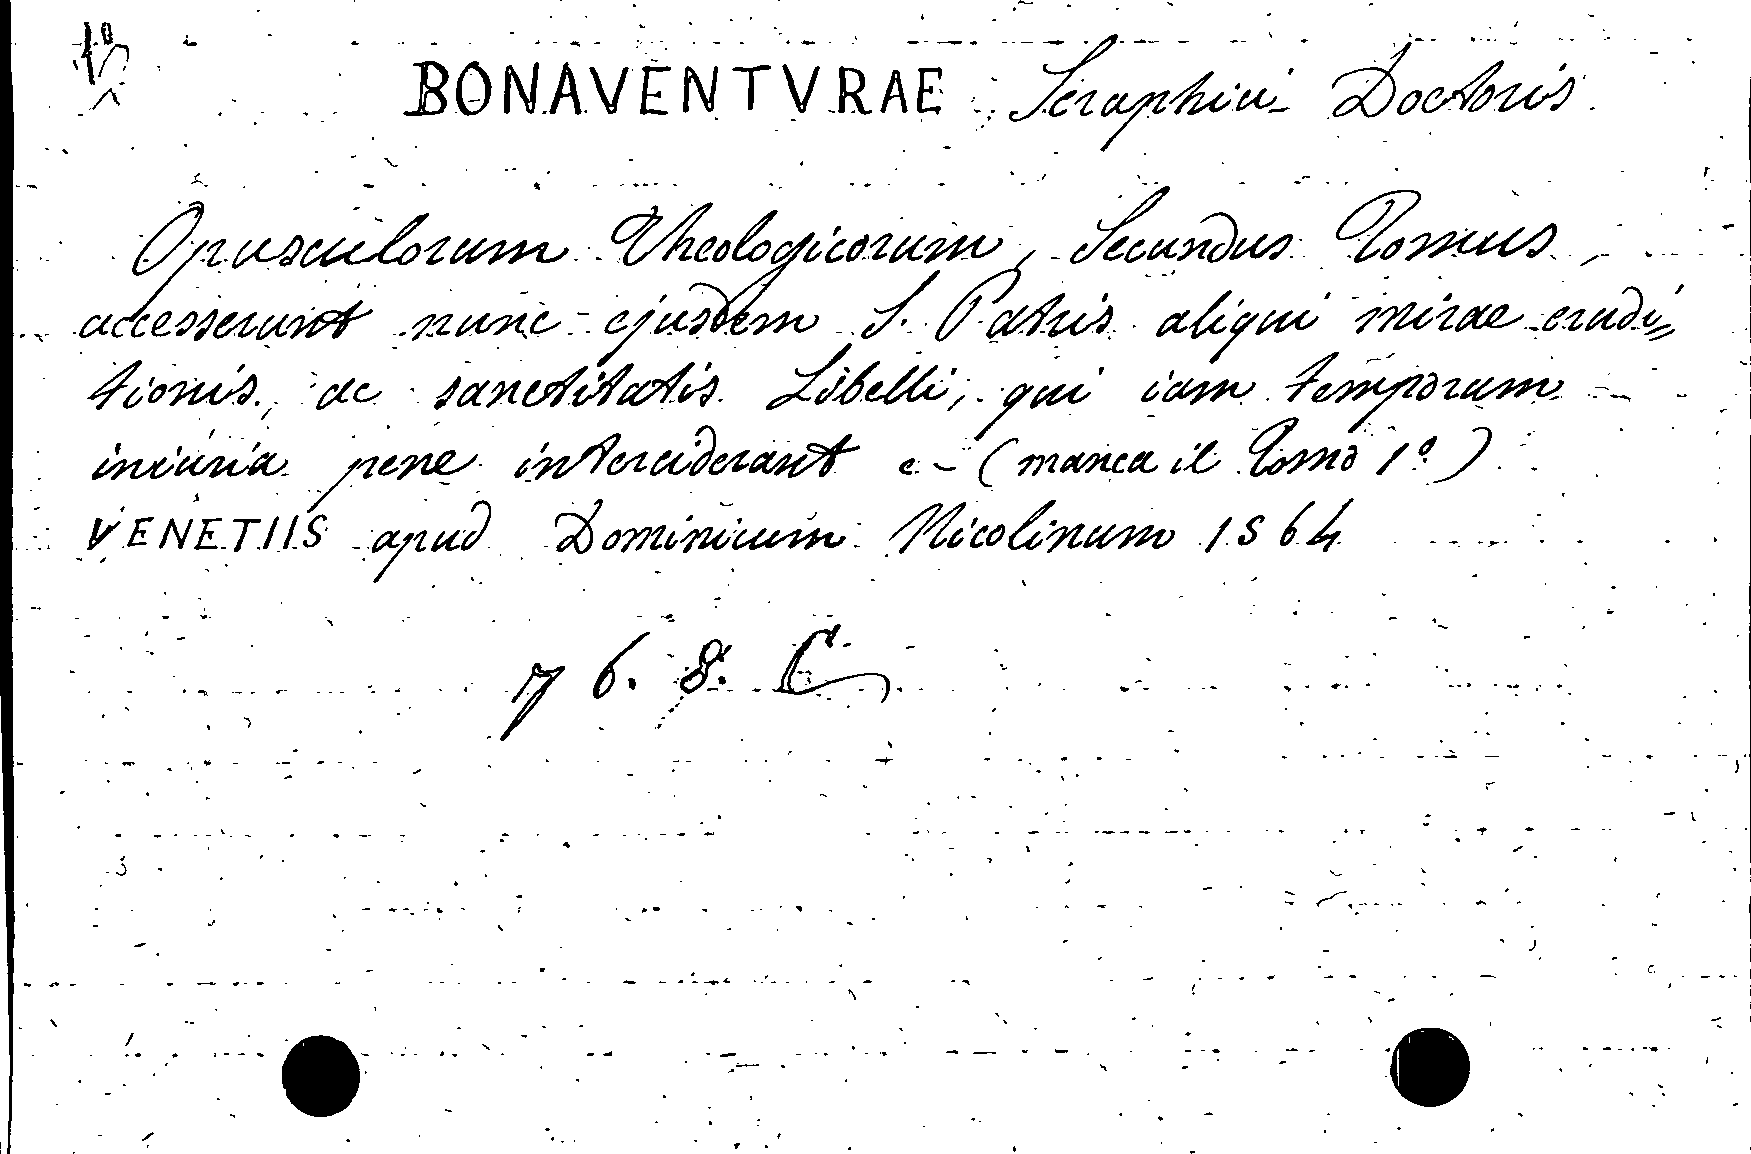 BONAVENTVRAE Seraphici Doctoris
Opusculorum Theologicorum, Secundus Tomus,
accesserunt nunc ejusdem S. Patris aliqui mirae erudi=
tionis, ac sanctitatis Libelli, qui iam temporum
iniuria pene interciderant c - (manca il Tomo 1º)
VENETIIS apud Dominicum Nicolinum 1564
76. 8. C